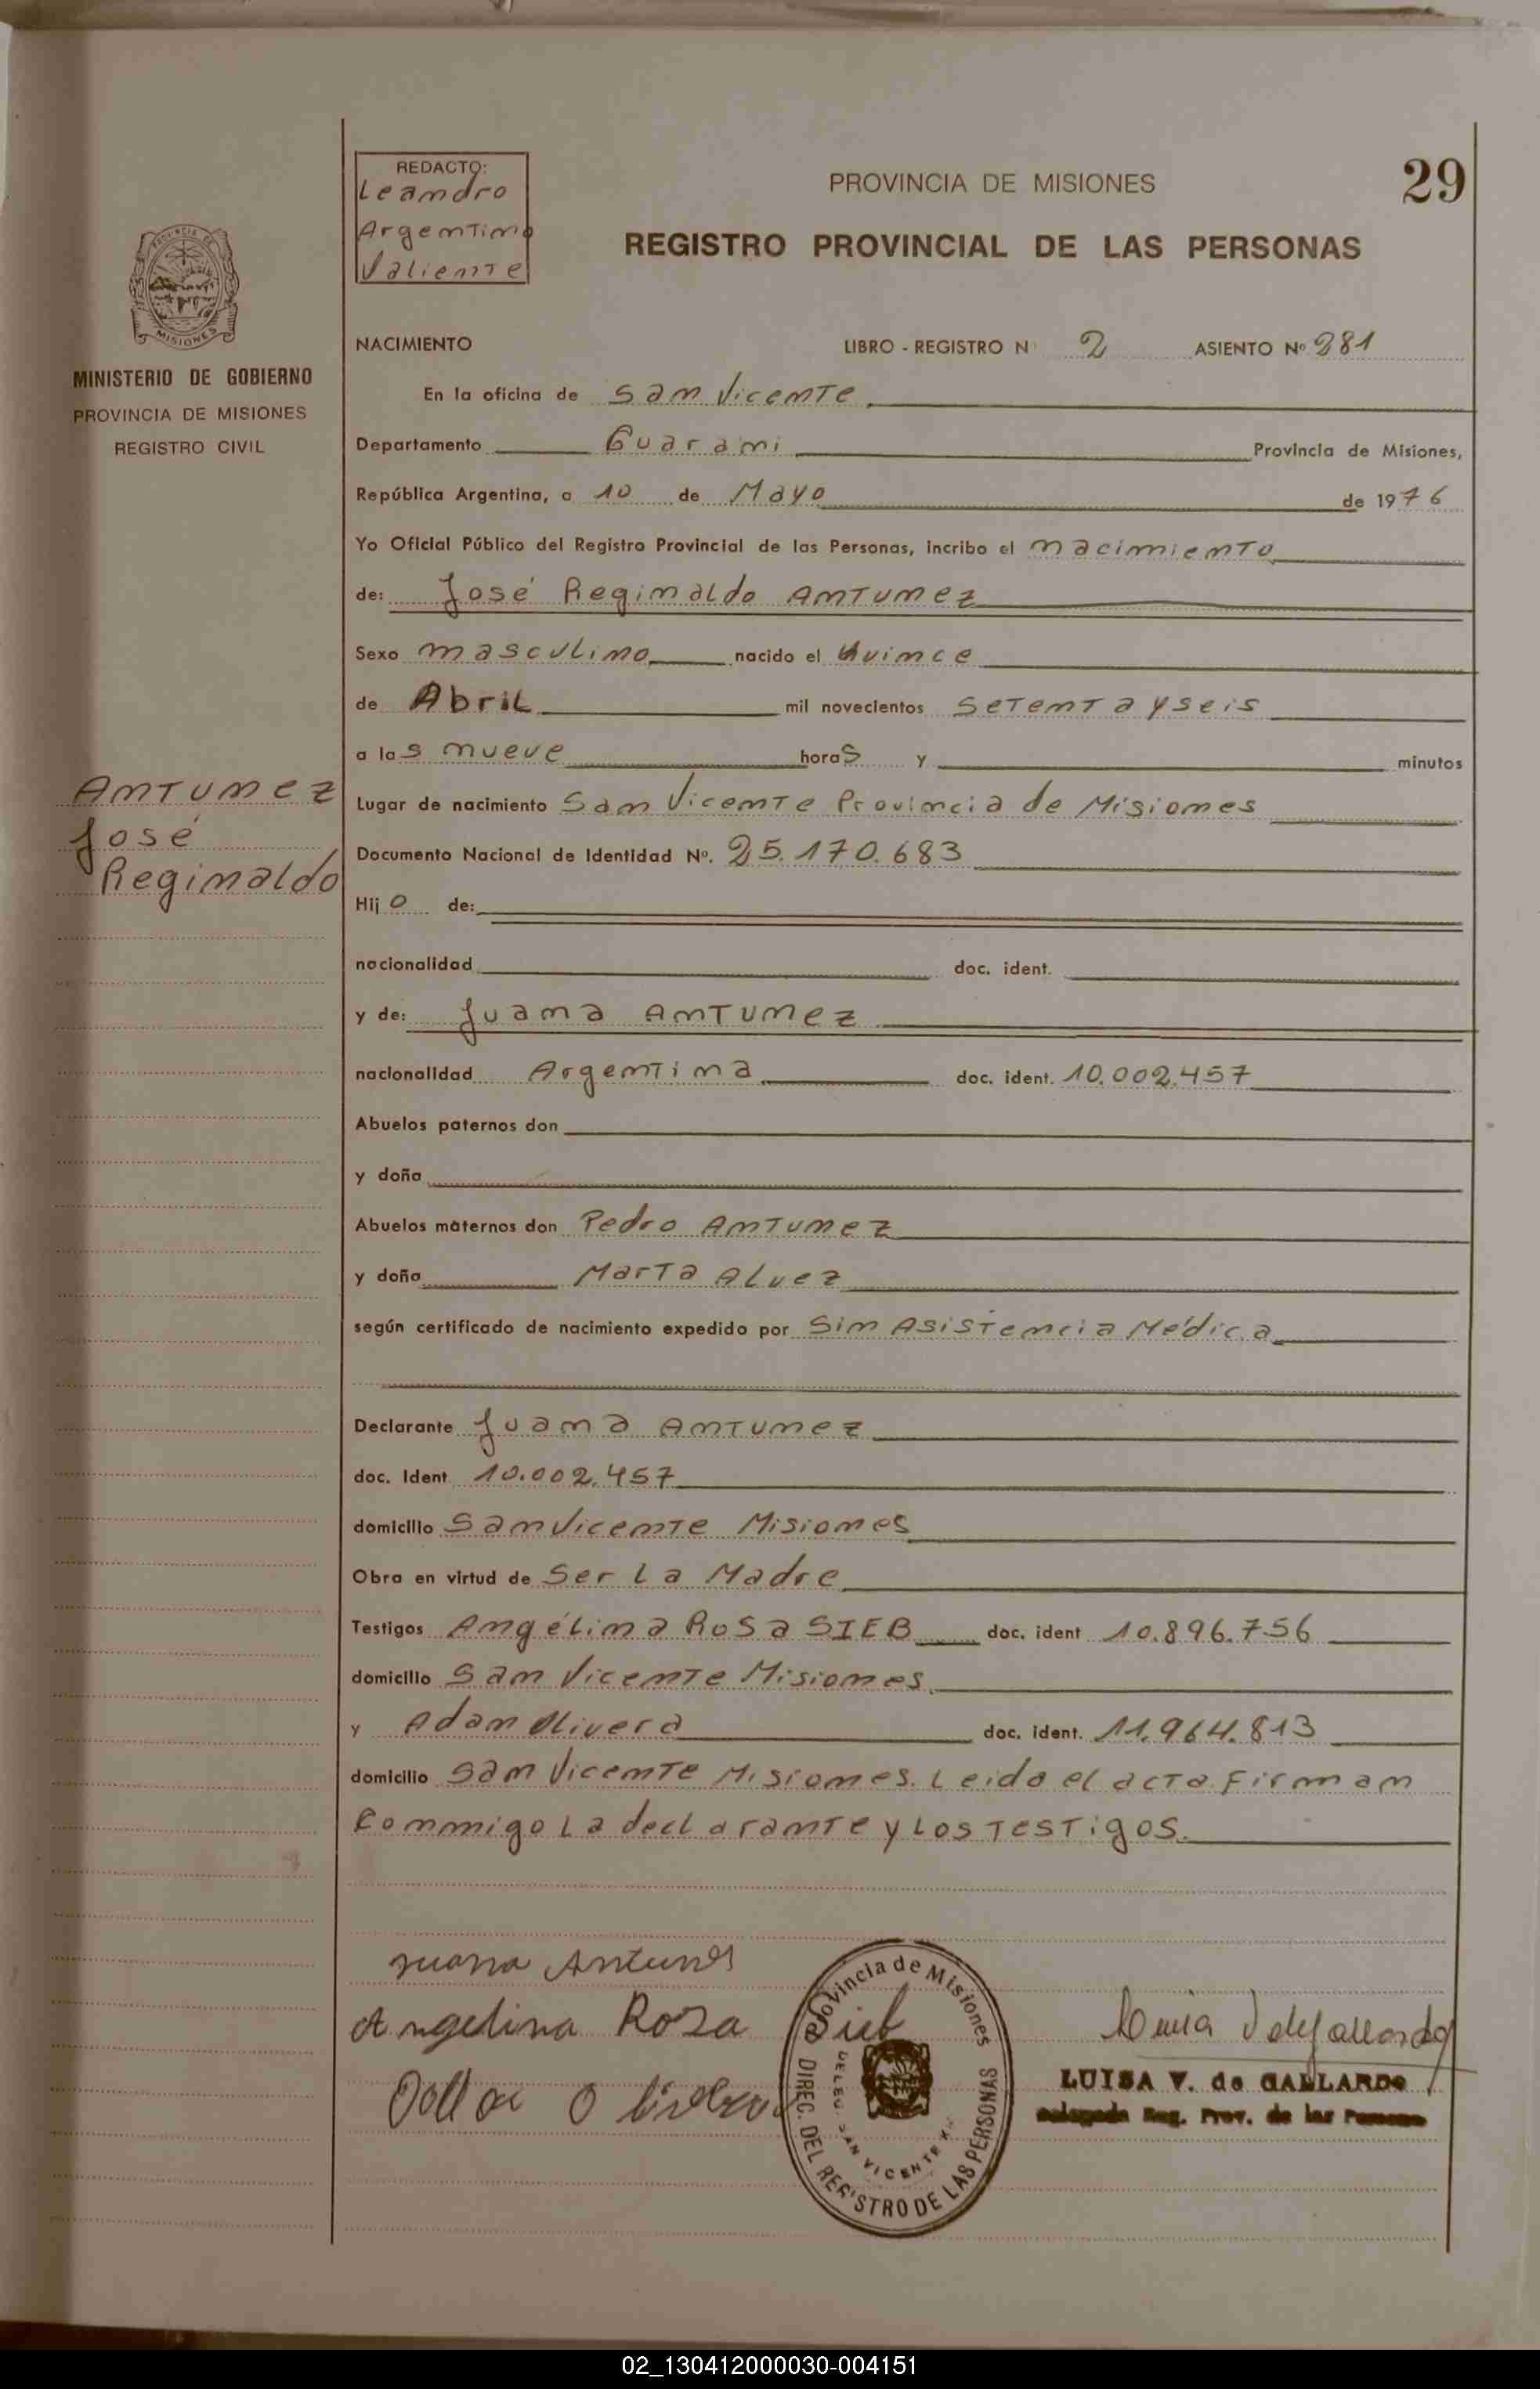 REDACTO:
Leandro
Argentino
Valiente
PROVINCIA DE MISIONES
29
REGISTRO PROVINCIAL DE LAS PERSONAS
PROVINCIA DE
MISIONES
MINISTERIO DE GOBIERNO
PROVINCIA DE MISIONES
REGISTRO CIVIL
NACIMIENTO LIBRO - REGISTRO N° 2 ASIENTO Nº 281
En la oficina de San Vicente
Departamento Guarani Provincia de Misiones,
República Argentina, a 10 de Mayo de 1976
Yo Oficial Público del Registro Provincial de las Personas, incribo el nacimiento
de: José Reginaldo Antunez
Sexo masculino nacido el Quince
de Abril mil novecientos setenta y seis
a las nueve horas y minutos
Antunez
José
Reginaldo
Lugar de nacimiento San Vicente Provincia de Misiones
Documento Nacional de Identidad Nº. 25.170.683
Hijo de:
nacionalidad doc. ident.
y de: Juana Antunez
nacionalidad Argentina doc. ident. 10.002.457
Abuelos paternos don
y doña
Abuelos maternos don Pedro Antunez
y doña Marta Alvez
según certificado de nacimiento expedido por Sin Asistencia Médica
Declarante Juana Antunez
doc. Ident 10.002.457
domicilio San Vicente Misiones
Obra en virtud de Ser La Madre
Testigos Angélina Rosa SIEB doc. ident 10.896.756
domicilio San Vicente Misiones
y Adan Olivera doc. ident. 11.964.813
domicilio San Vicente Misiones. Leido el acta firman
Conmigo La declarante y Los Testigos.
Juana Antunes
Angelina Rosa Sieb
Provincia de Misiones
DELEG. SAN VICENTE
DIREC. DEL REGISTRO DE LAS PERSONAS
LUISA V. de GALLARDO
Delegada Reg. Prov. de las Personas
02_130412000030-004151